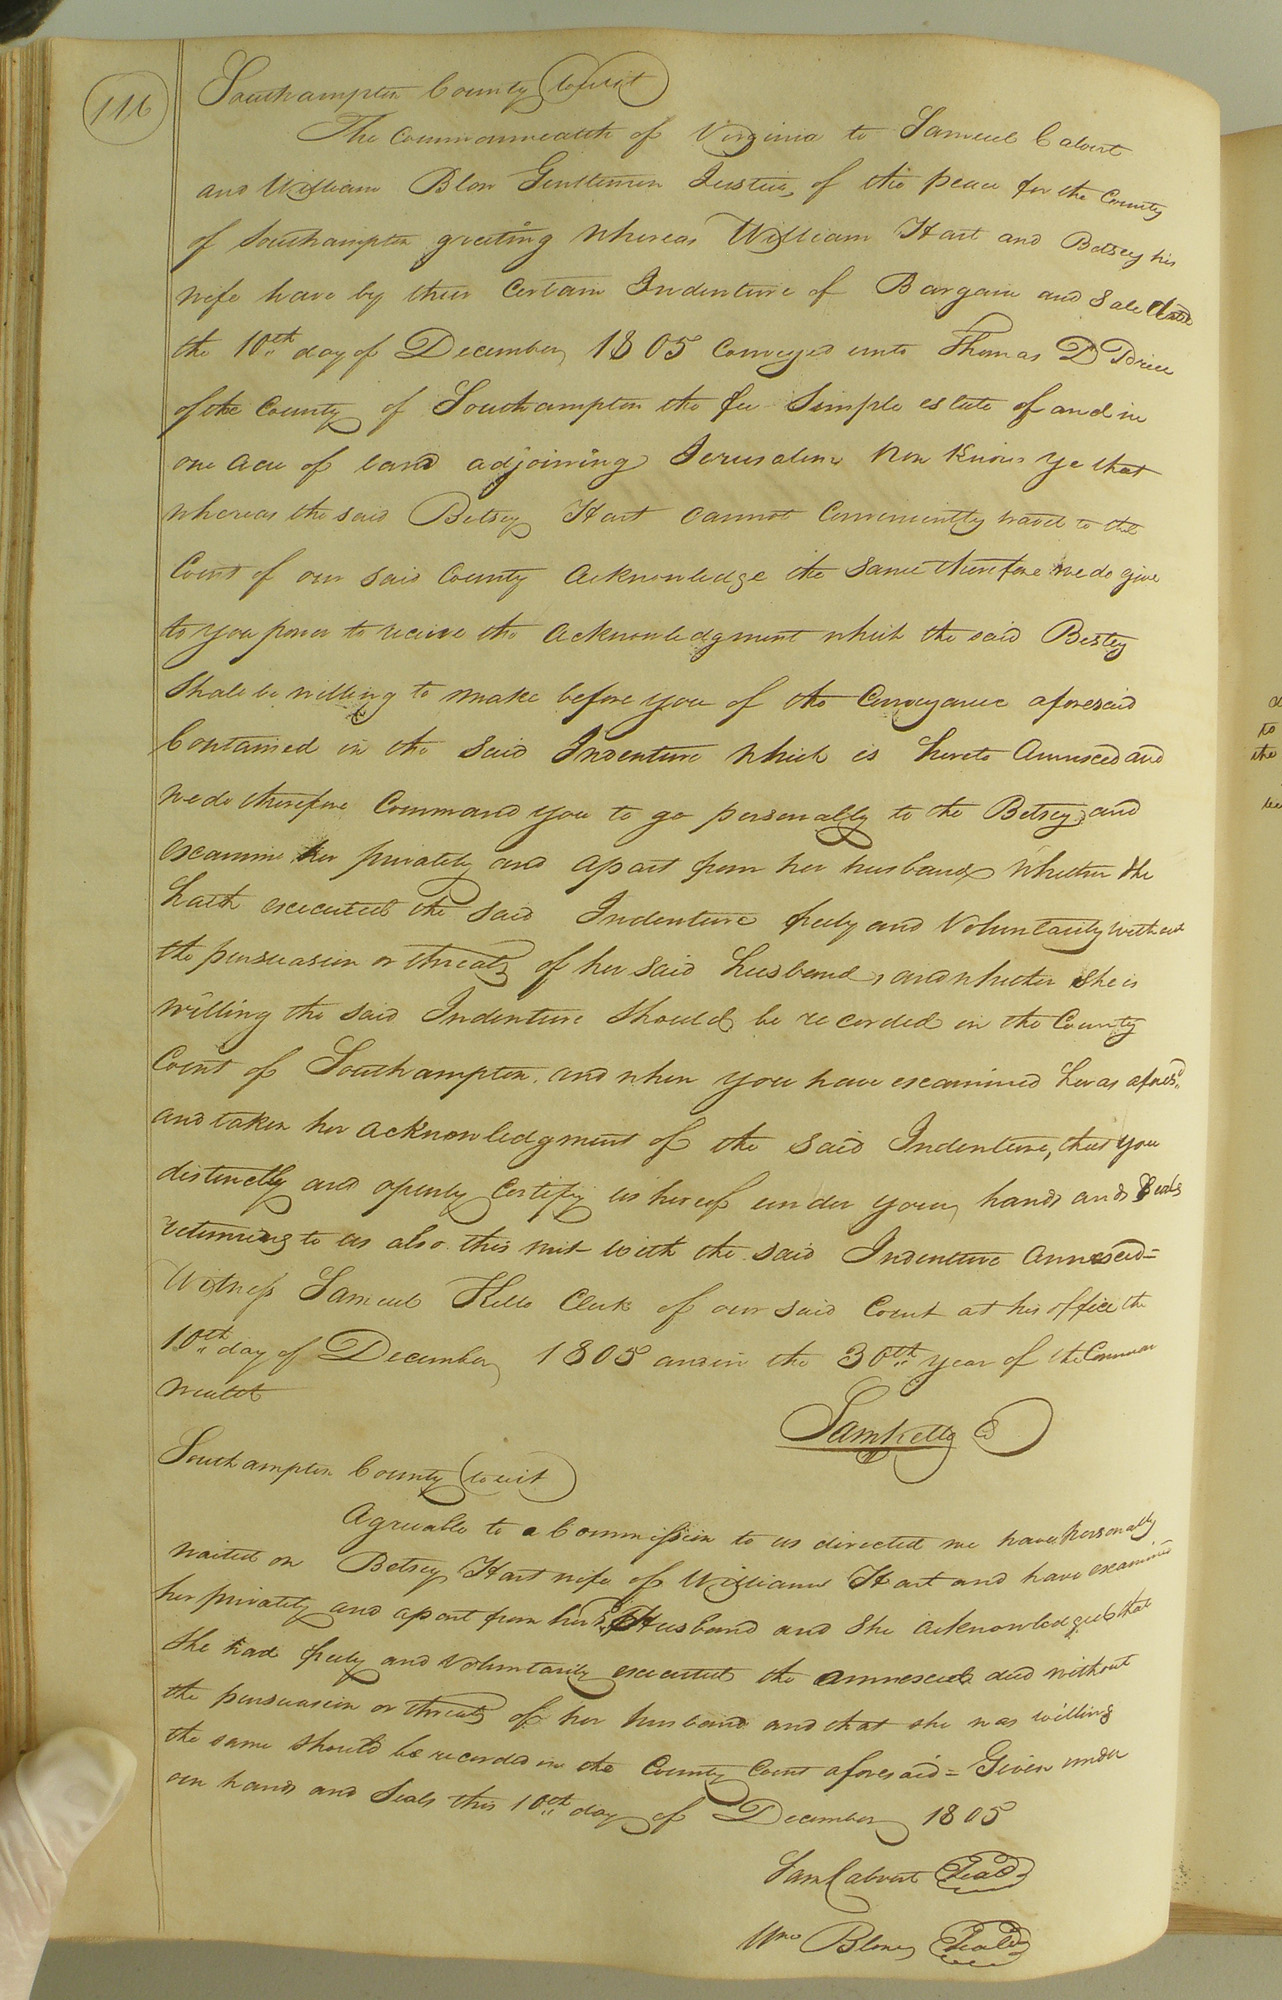 116
Southampton County towit
The Commonwealth of Virginia to Samuel Calvert
and William Blow Gentlemen Justices of the peace for the County
of Southampton greeting Whereas William Hart and Betsey his
wife have by their Certain Indenture of Bargain and Sale dated
the 10th day of December 1805 Conveyed unto Thomas D
of the County of Southampton the fee Simple estate of and in
one acre of land adjoining Jerusalem Now Know ye that
whereas the said Betsey Hart cannot Conveniently travel to the
Court of our said County acknowledge the same therefore we do give
to you power to receive the acknowledgment which the said Bestey
Shall be willing to make before you of the Conveyance aforesaid
Contained in the said Indenture which is hereto Annexed and
we do therefore Command you to go personally to the Betsey and
examine her privately and apart from her husband, whether she
hath executed the said Indenture freely and Voluntarily without
the persuasion or threats of her said husband, and whether she is
willing the said Indenture Should be recorded in the County
Court of Southampton, and when you have examined her as afores.d
and taken her acknowledgment of the said Indenture, that you
distinctly and openly Certify us hereof under your hands and Seals
returning to us also this writ with the said Indenture annexed=
Witness Samuel Kello Clerk of our said Court at his office the
10th day of December 1805 and in the 30th year of the Common
wealth
Sam Kello C
Southampton County (to wit)
Agreeable to a Commission to us directed we have personally
waited on Betsey Hart wife of William Hart and have examined
her privately and apart from her Husband and She acknowledged that
She had freely and Voluntarily executed the annexed deed without
the persuasion or threats of her husband and that she was willing
the same should be recorded in the County Court aforesaid= Given under
our hands and Seals this 10th day of December 1805
Sam Calvert Seal
Wm Blow Seal
to
the